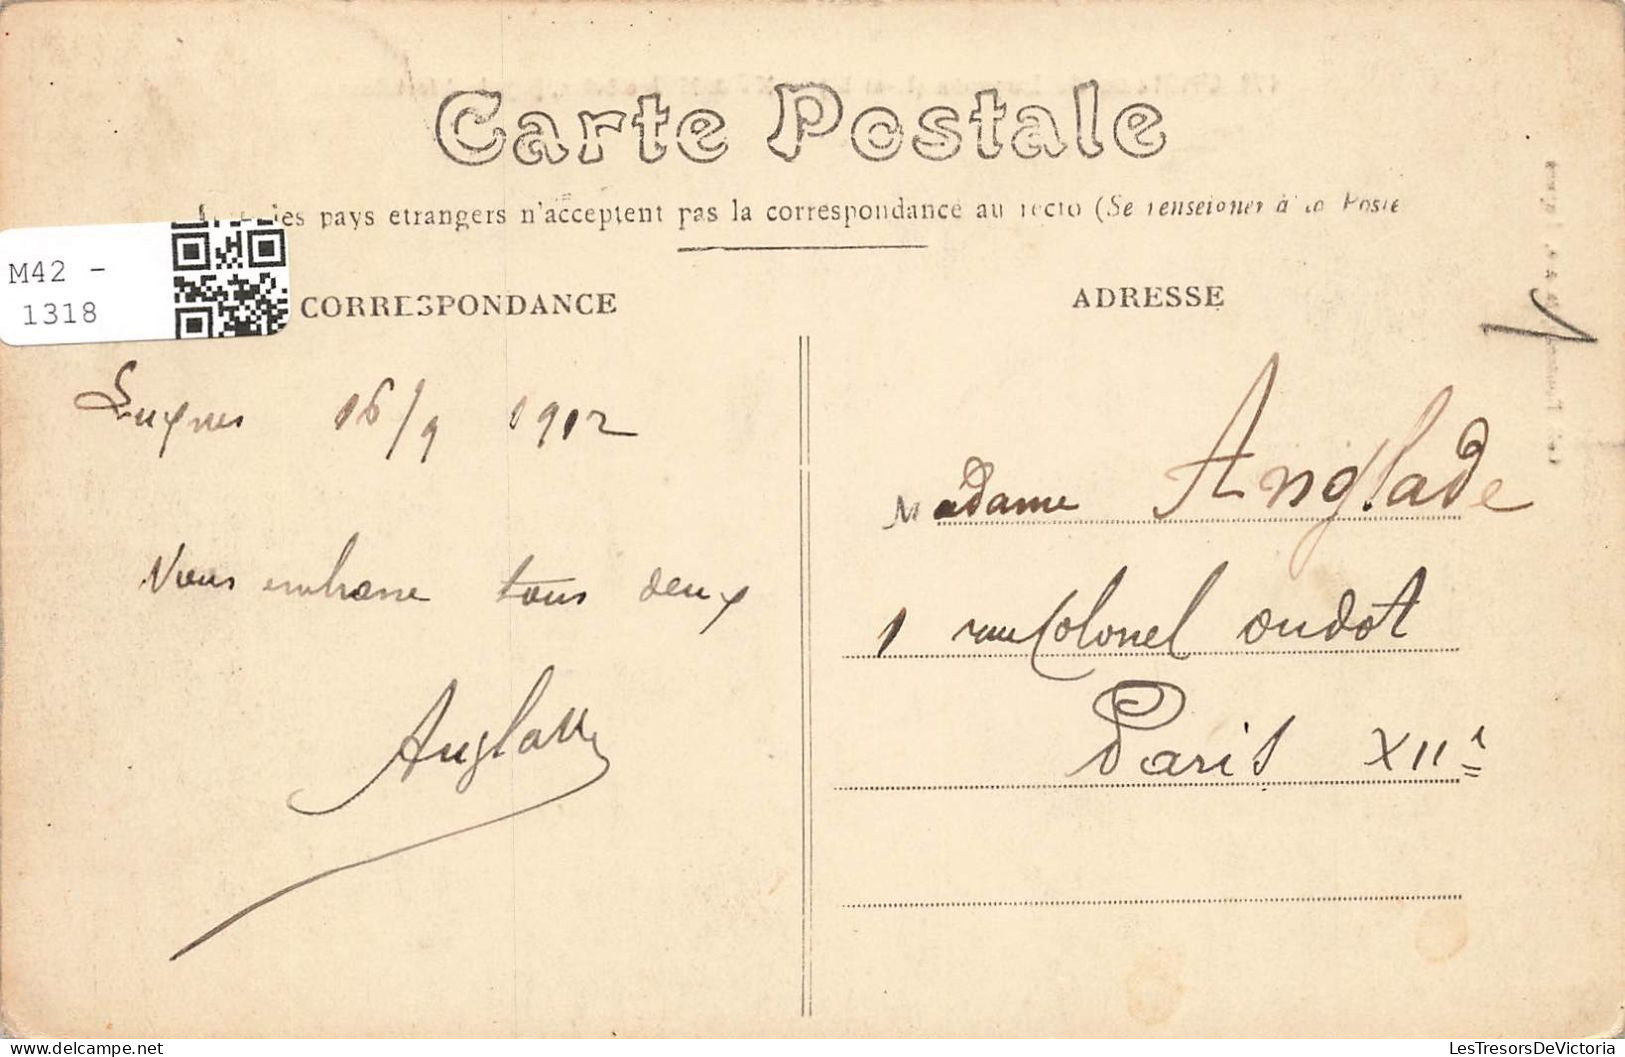 Carte Postale
les pays etrangers n'acceptent pas la correspondance au recto (Se renseigner à la Poste
M42 -
1318
CORRESPONDANCE
ADRESSE
Luynes 16/9 1912
Vous embrasse tous deux
Anglade
Madame Anglade
1 rue Colonel oudot
Paris XIIe
LesTresorsDeVictoria